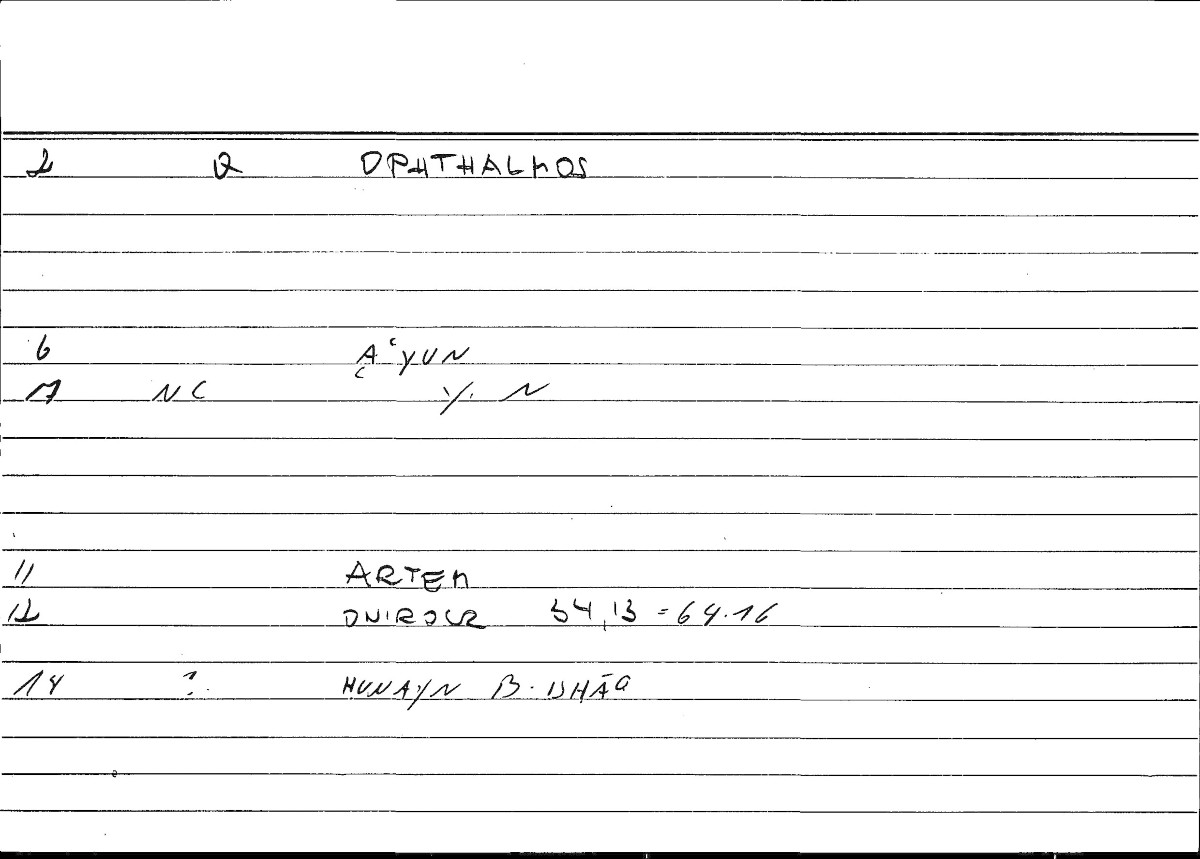 2 Q OPHTHALMOS
6 A ʿYUN
17 NC ʿY.N
11 ARTEM
12 ONIROCR 54,13 = 64.16
14 ? HUNAYN B. ISHĀQ